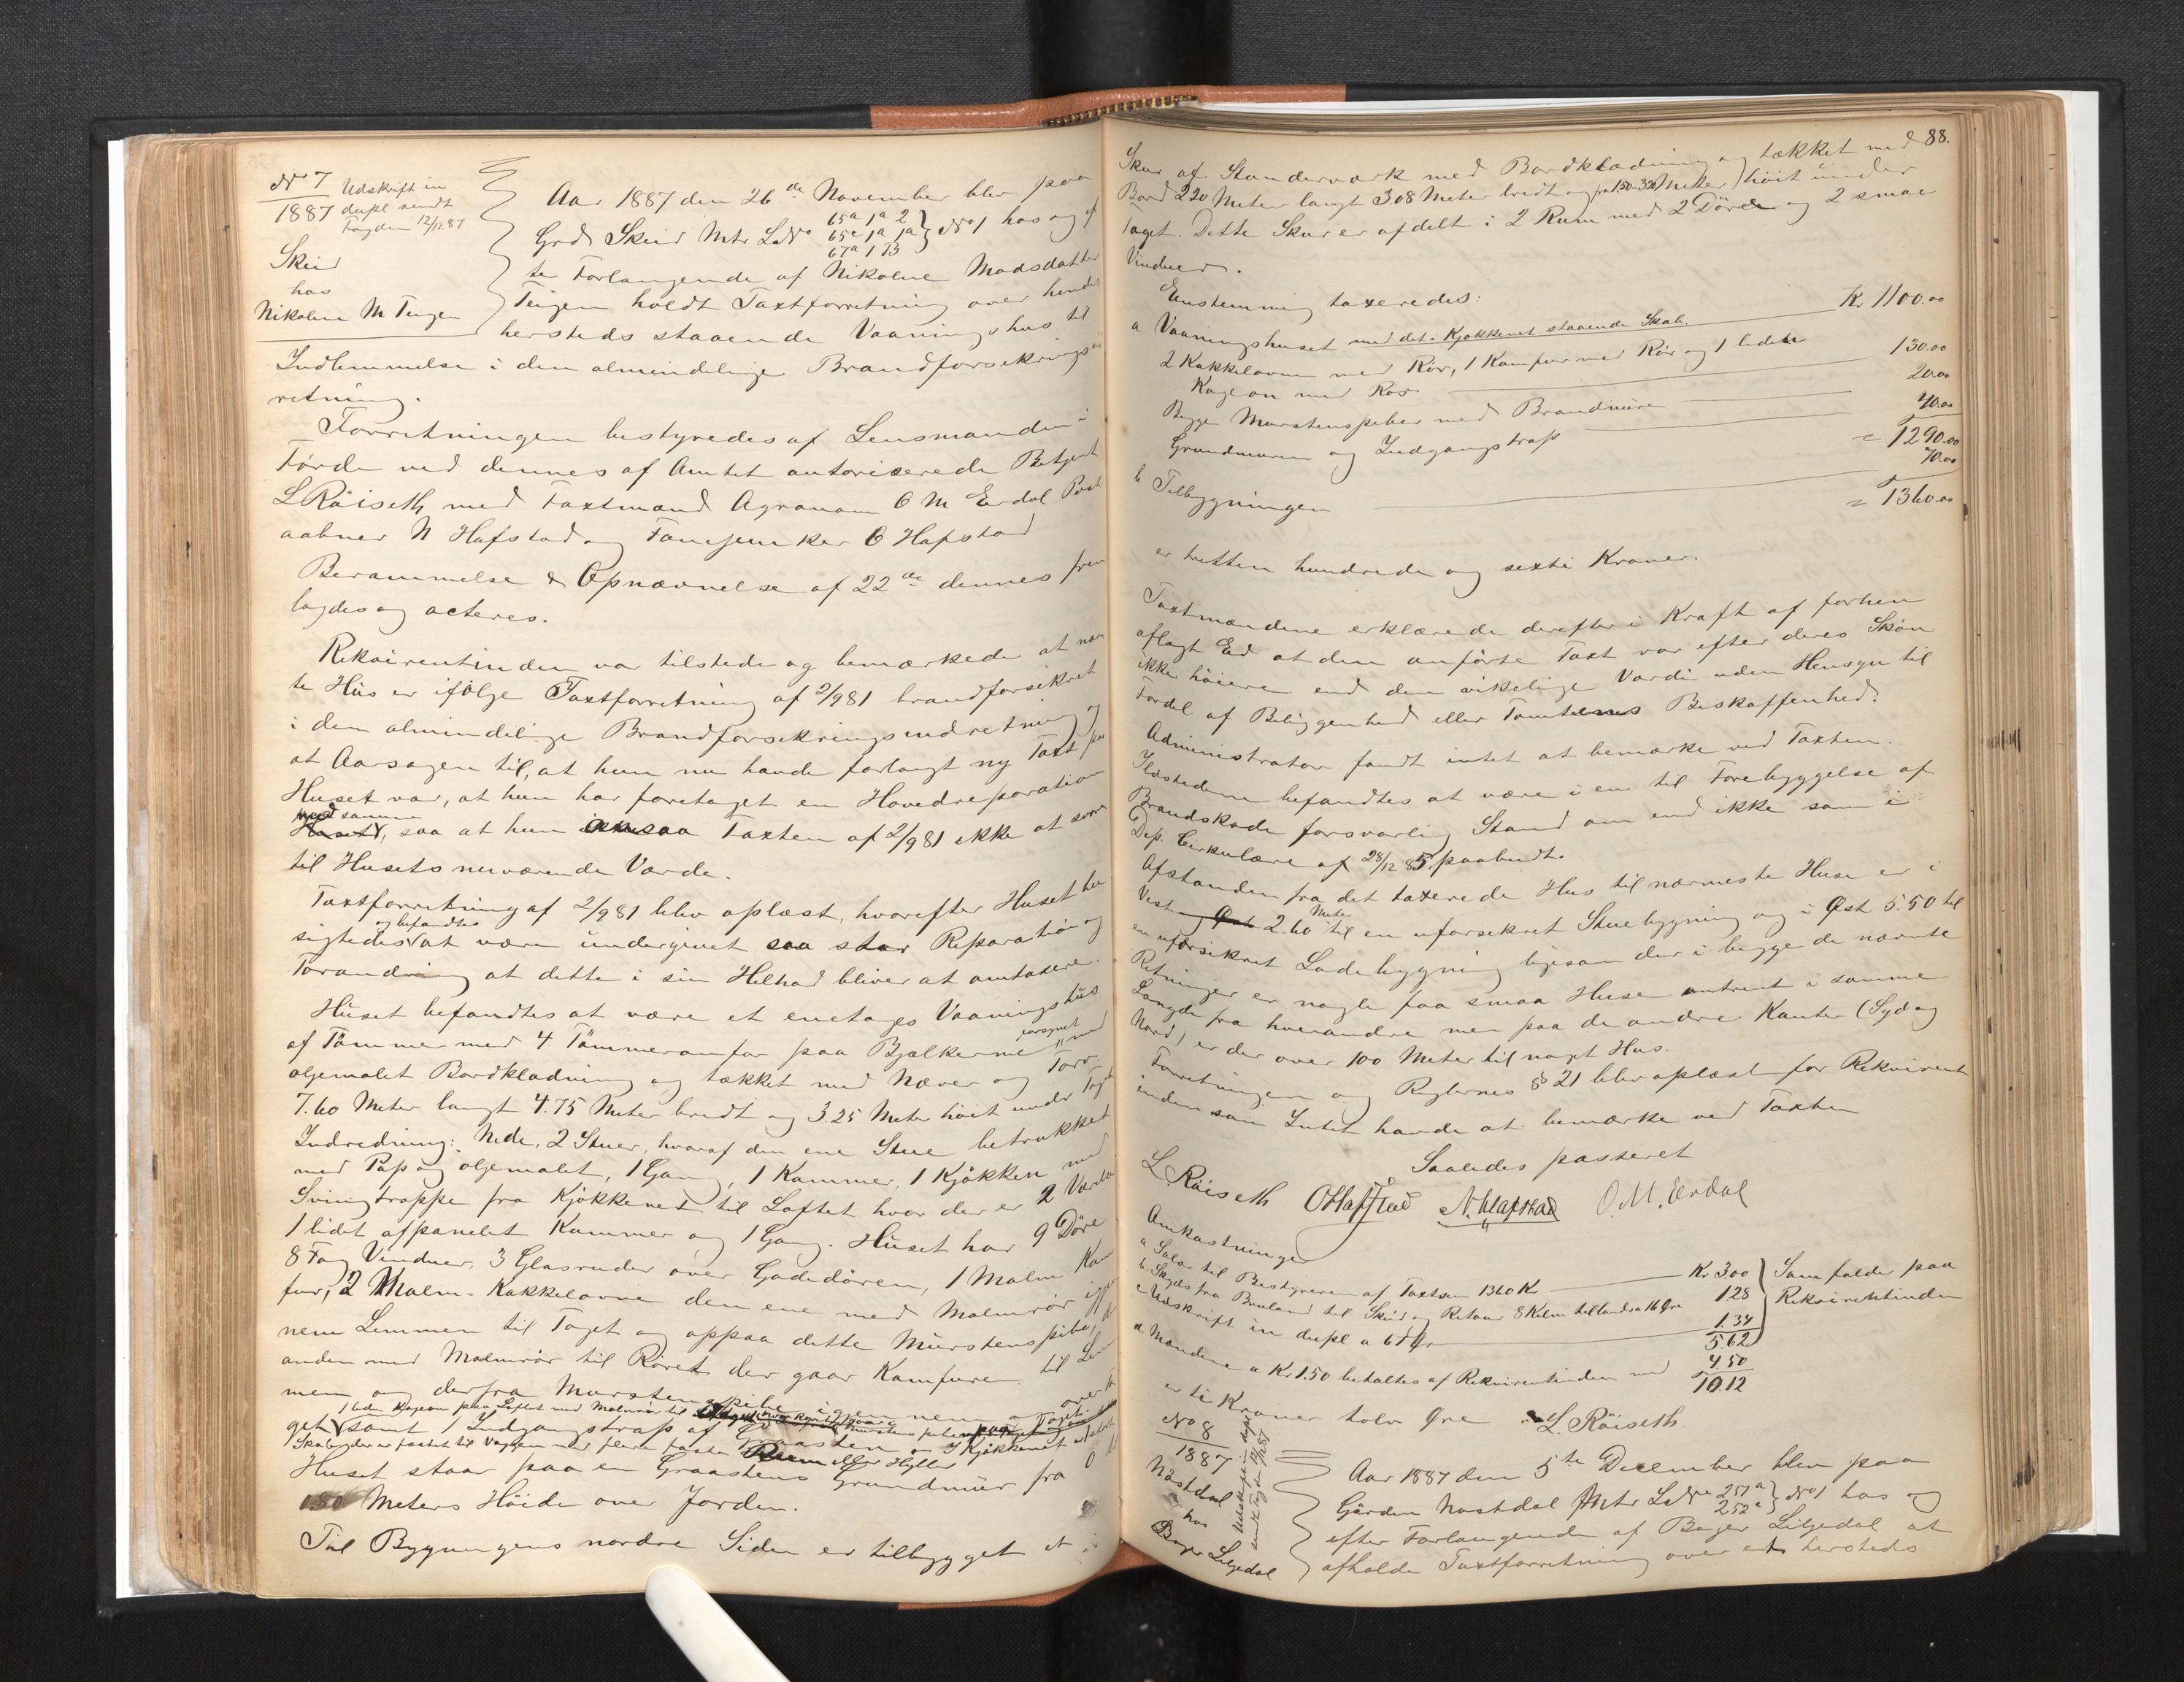 No 7
1887
Udskrift in
dupl sendt
Fogden 12/12 87
Skei
hos
Nikoline M Teigen
Aar 1887 den 26de November blev paa
Grd Skei Mtr LNo 65a 1a 2 65c 1a 1a 67a 1 B No 1 hos og ef
ter Forlangende af Nikoline Madsdatter
Teigen holdt Taxtforretning over hendes
hersteds staaende Vaaningshus til
Indlemmelse i den almindelige Brandforsikringsind
retning.
Forretningen bestyredes af Lensmanden i
Förde ved dennes af Amtet autoriserede Betjent
L Röiseth med Taxtmænd Agronom O M Erdal Post
aabner N Hafstad og Fanejunker O Hafstad
Berammelse & Opnævnelse af 22de dennes frem
lagdes og acteres.
Rekvirentinden var tilstede og bemærkede at næv
te Hus er ifölge Taxtforretning af 2/9 81 brandforsikret
i den almindelige Brandforsikringsindretning og
at Aarsagen til, at hun nu havde forlangt ny Taxt paa
Huset var, at hun har foretaget en Hovedreparation
med samme
Huset, saa at hun ansaa Taxten af 2/9 81 ikke at svare
til Husets nuværende Værde.
Taxtforretning af 2/9 81 blev oplæst, hvorefter Huset be
og befandtes
sigtedes at være undergivet saa stor Reparation og
Forandring at dette i sin Helhed bliver at omtaxere.
Huset befandtes at være et enetages Vaaningshus
af Tömmer med 4 Tömmeromfar paa Bjælkerne forsynet med
oljemalet Bordklædning og tækket med Næver og Torv
7.60 Meter langt 4.75 Meter bredt og 3.25 Meter höit under Taget
Indredning: Nede, 2 Stuer, hvoraf den ene Stue betrukket
med Pap og oljemalet, 1 Gang, 1 Kammer, 1 Kjökken med
Svingtrappe fra Kjökkenet til Loftet hvor der er 2 Værelser
1 lidet afpanelet Kammer og 1 Gang. Huset har 9 Döre
8 Fag Vinduer, 3 Glasruder over Gadedören, 1 Malm Kom
fur, 2 Malm-Kakkelovne den ene med Malmrör igjen
nem Lemmen til Taget og oppaa dette Murstenspibe, den
anden med Malmrör til Röret der gaar Komfuren til Lem
men og derfra Murstenspibe igjennem og over Ta
1 liden Kogeovn paa Loftet med Malmrör til
get samt 1 Indgangstrap af Graasten og I Kjökkenet et fast
Skab der er fæstet til Væggen med flere faste Rum eller Hylder
Huset staar paa en Graastens Grundmur fra 0 til
0.80 Meters Höide over Jorden.
Til Bygningens nordre Side er tilbygget et
88.
Skur af Standerværk med Bordklædning og tækket med
Bord 2.20 Meter langt 3.08 Meter bredt og fra 1.50-3.20 Meter höit under
Taget. Dette Skur er afdelt i 2 Rum med 2 Döre og 2 smaa
Vinduer.
Enstemmig taxeredes:
a Vaaningshuset med det i Kjøkkenet staaende Skab. Kr. 1100.00
2 Kakkelovne med Rör, 1 Komfur med Rör og 1 liden
Kogeovn med Rör 130.00
Begge Murstenspiber med Brandmure 20.00
Grundmuren og Indgangstrap 40.00
= 1290.00
b Tilbygningen 70.00
= 1360.00
er tretten hundrede og sexti Kroner.
Taxtmændene erklærede derefter i Kraft af forhen
aflagt Ed at den anförte Taxt var efter deres Skön
ikke höiere end den virkelige Værdi uden Hensyn til
Fordel af Beliggenhed eller Tomtens Beskaffenhed.
Administrator fandt intet at bemærke ved Taxten.
Ildstederne befandtes at være i en til Forebyggelse af
Brandskade forsvarlig Stand om end ikke som i
Dep. Cirkulære af 28/12 85 paabudt.
Afstanden fra det taxerede Hus til nærmeste Huse er i
Vest og Øst 2.60 Meter til en uforsikret Stuebygning og i Øst 5.50 til
en uforsikret Ladebygning ligesom der i begge de nævnte
Retninger er nogle faa smaa Huse omtrent i samme
Længde fra hverandre men paa de andre Kanter (Syd og
Nord) er der over 100 Meter til noget Hus.
Forretningen og Reglernes § 21 blev oplæst for Rekvirent
inden som Intet havde at bemærke ved Taxten
Saaledes passeret
L. Röiseth OHafstad N. Hafstad O.M. Erdal
Omkostninger
a Salær til Bestyreren af Taxtsum 1360 Kr Kr 3.00
b. Skyds fra Bruland til Skei og Retour 8 Kilm tillands a 16 Øre 1.28
c Udskrift in dupl a 67 Ør 1.34
5.62
Som falder paa
Rekvirentinden
d Mændene a Kr 1.50 betaltes af Rekvirentinden med 4.50
10.12
er ti Kroner tolv Øre L. Röiseth
No 8
1887
Nastdal
hos
Bager Liljedal
Udskrift in dupl
sendt Fogden 12/12 87
Aar 1887 den 5te December blev paa
Gården Nastdal Mtr LNo 251a 252c No 1 hos og
efter Forlangende af Bager Liljedal at
afholde Taxtforretning over et hersteds